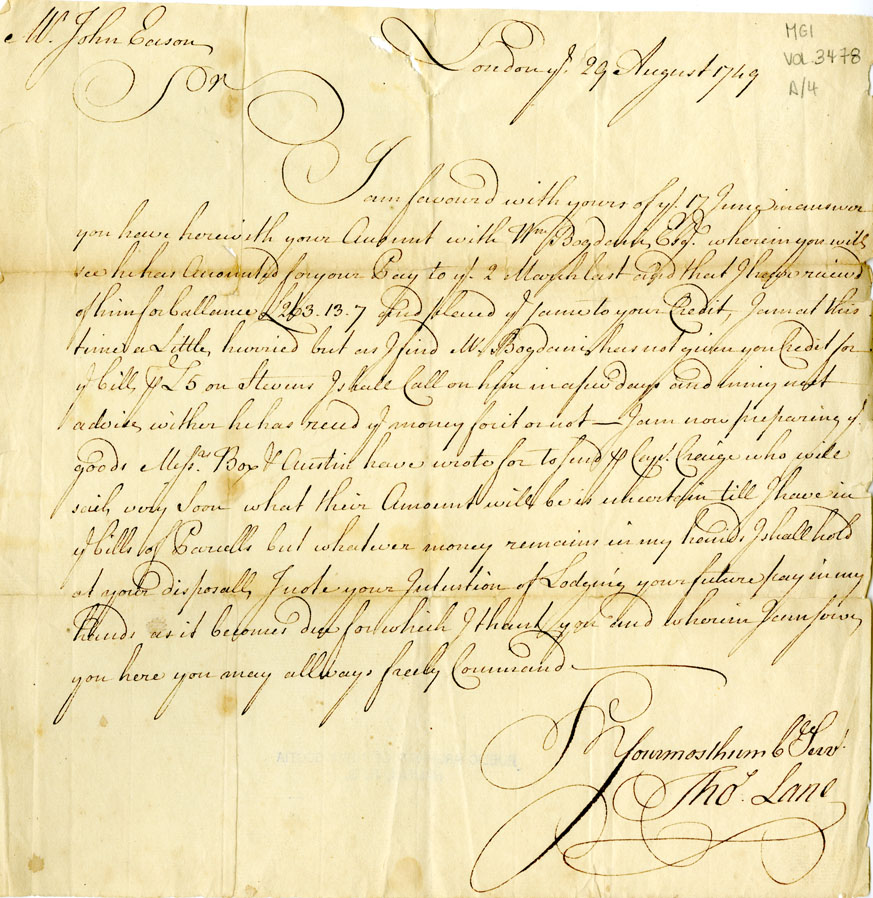 Mr. John Eason
London ye. 29 August 1749
MG1
Vol. 3478
A/4
Sr
I am favourd with yours of ye. 17 June in answer
you have herewith your Account with Wm. Bogdani Esqr. wherein you will
see he has Accounted for your Pay to ye. 2 March last and that I have reciev'd
of him for ballance £263.13.7 and placed ye same to your Credit, I am at this
time a Little hurried but as I find Mr. Bogdani has not given you Credit for
ye bill of £5 on Stevens I shall Call on him in a few days and in my next
advise wither he has recd ye money for it or not — I am now preparing ye.
goods Messrs. Box & Austin have wrote for to send ⅌ Capt. Craige who will
sail very soon what their Amount will be is uncertain till I have in
ye bills of Parcells but whatever money remains in my hands I shall hold
at your disposall, I note your Intention of Lodging your future pay in my
hands as it becomes due for which I thank you and wherein I can serve
you here you may allways freely Command
Sr Your most humble Servt.
Thos. Lane